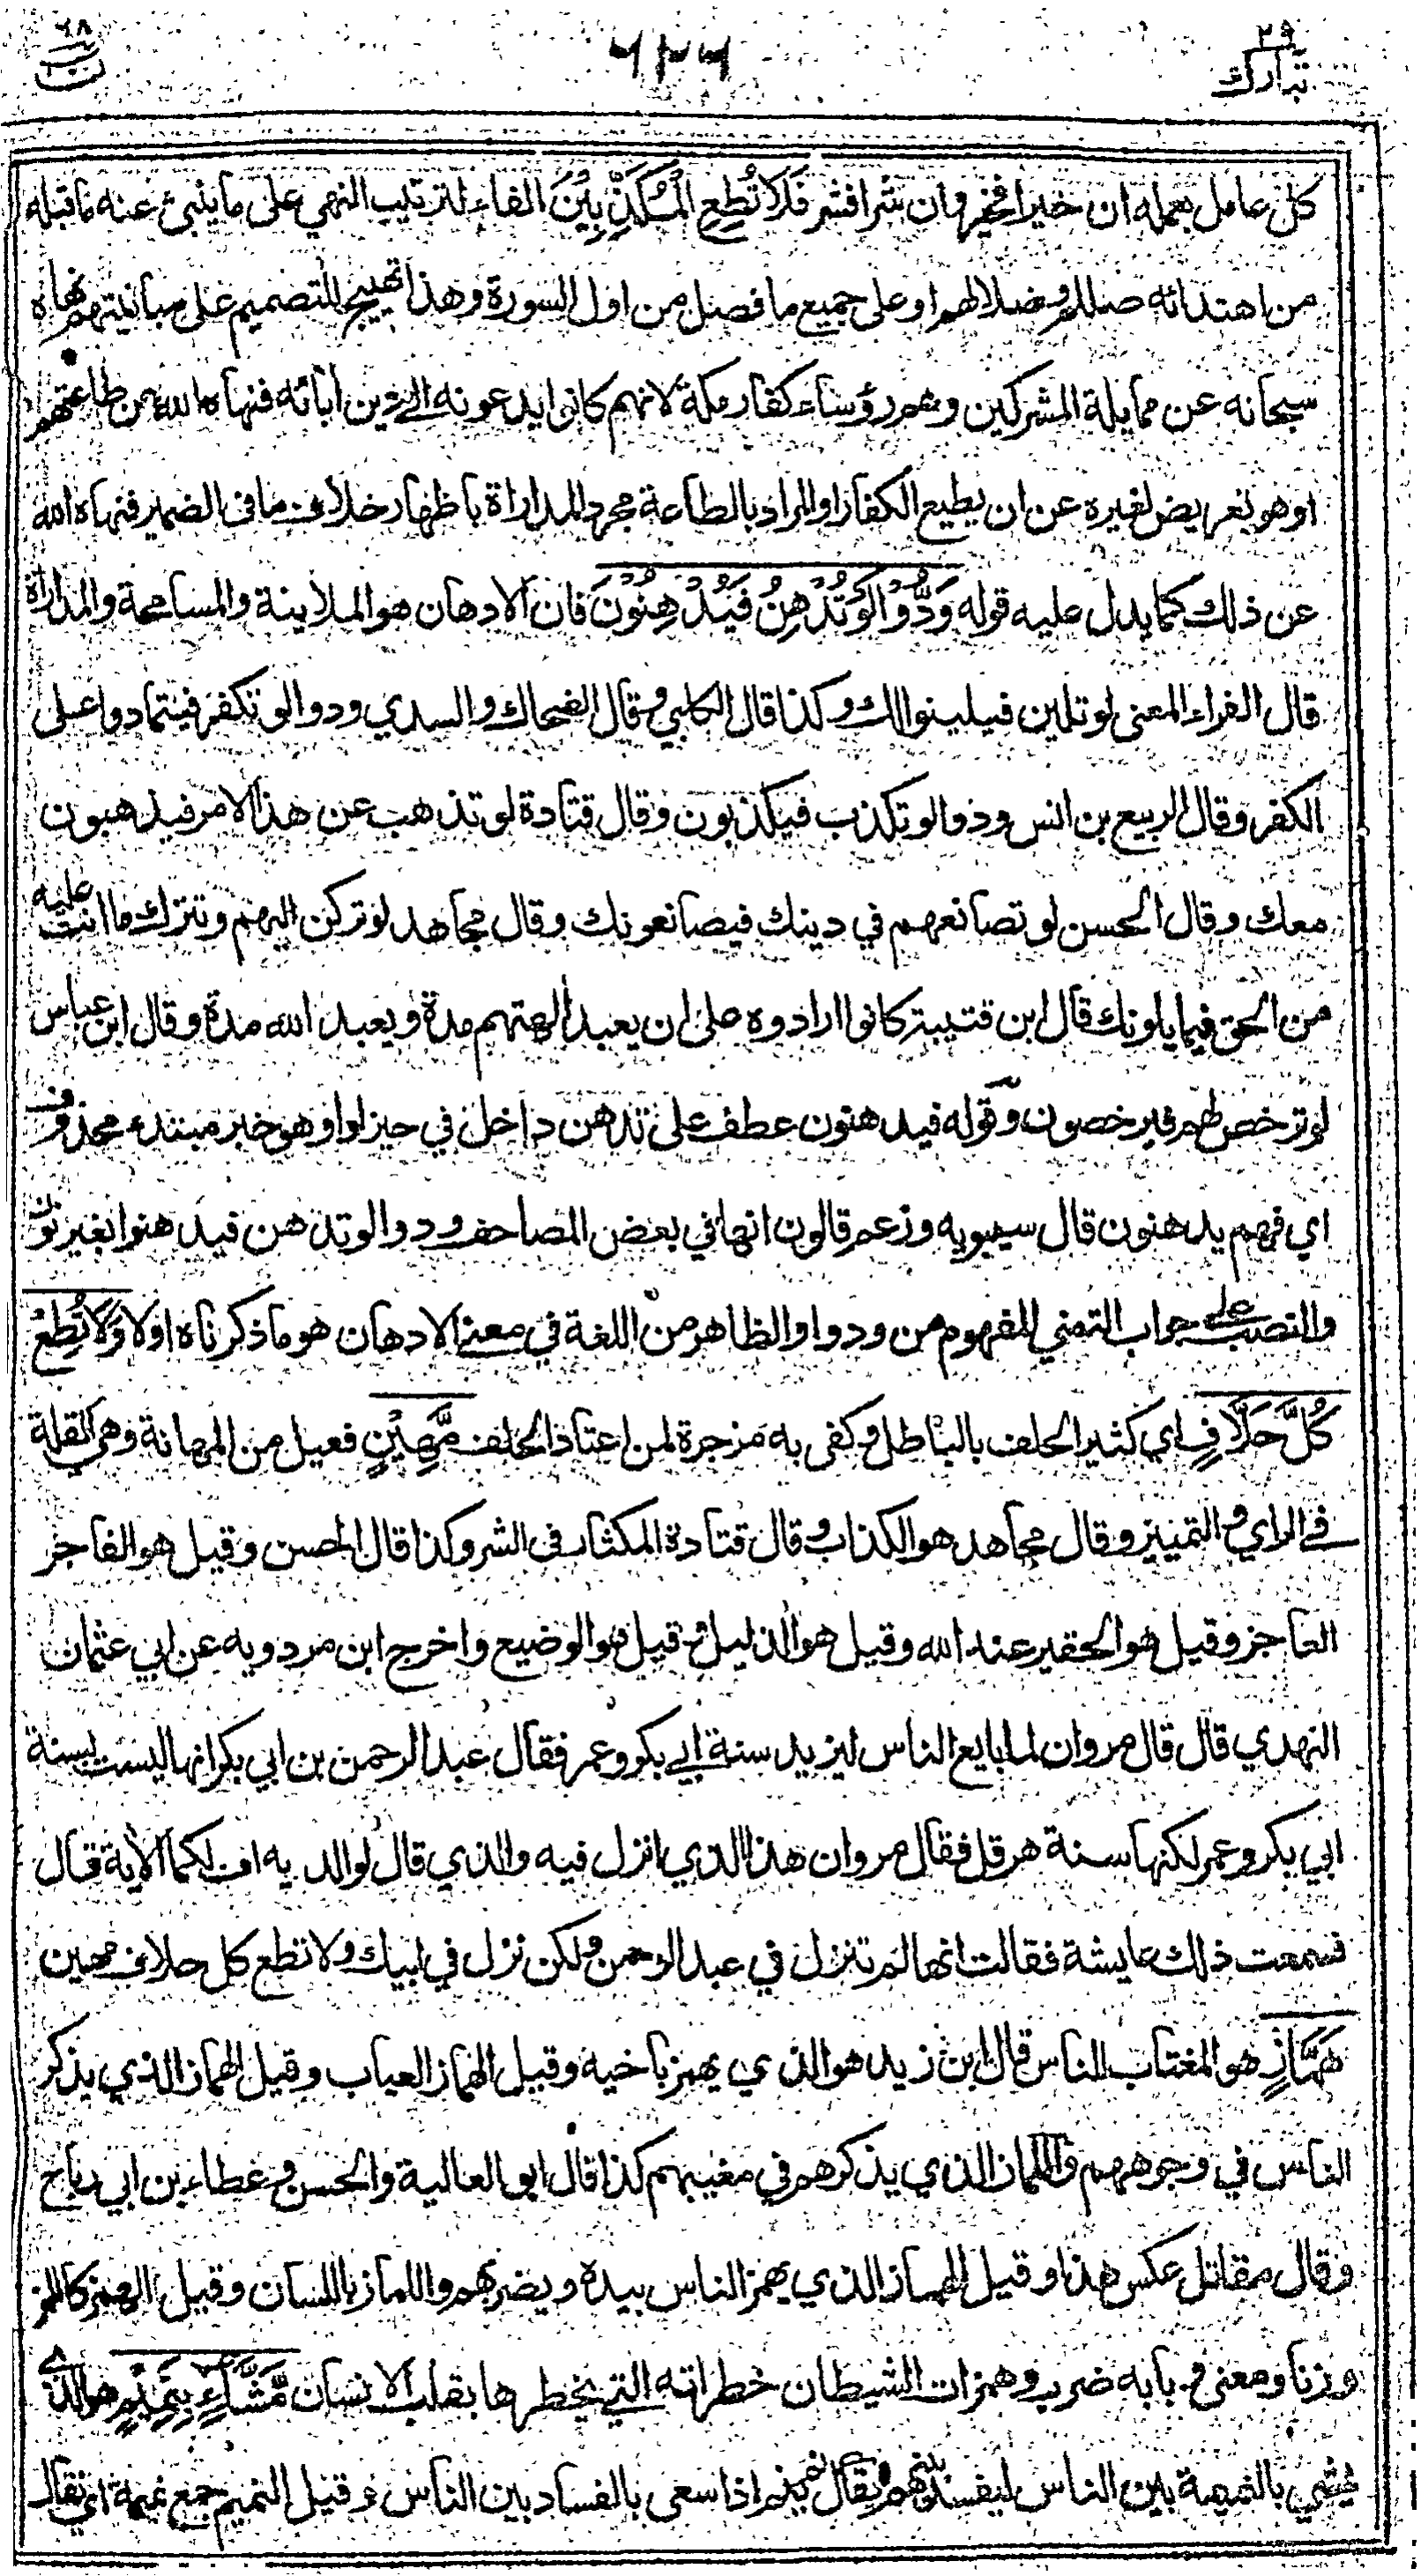 ٢٩
تبارك
٦٢٦
٦٨
ن
كل عامل بعمله ان خيرا فخير وان شرا فشر فَلَا تُطِعِ الْمُكَذِّبِيْنَ الفاء لترتيب النهي على ما ينبئ عنه ما قبله
من اهتدائه صللم وضلالهم او على جميع ما فصل من اول السورة وهذا تهييج للتصميم على مباينتهم نهاه
سبحانه عن ممايلة المشركين وهم رؤساء كفار مكة لانهم كانوا يدعونه الى دين آبائه فنهاه الله عن طاعتهم
او هو تعريض لغيره عن ان يطيع الكفار او المراد بالطاعة مجرد المداراة باظهار خلاف ما فى الضمير فنهاه الله
عن ذلك كما يدل عليه قوله وَدُّوْا لَوْ تُدْهِنُ فَيُدْهِنُوْنَ فان الادهان هو الملاينة والمسامحة والمداراة
قال الفراء المعنى لو تلين فيلينوا لك وكذا قال الكلبي وقال الضحاك والسدي ودوا لو تكفر فيتمادوا على
الكفر وقال الربيع بن انس ودوا لو تكذب فيكذبون وقال قتادة لو تذهب عن هذا الامر فيذهبون
معك وقال الحسن لو تصانعهم في دينك فيصانعونك وقال مجاهد لو تركن اليهم وتترك ما انت عليه
من الحق فيمايلونك قال ابن قتيبة كانوا ارادوه على ان يعبد آلهتهم مدة ويعبد الله مدة وقال ابن عباس
لو ترخص لهم فيرخصون وقوله فيدهنون عطف على تدهن داخل في حيز لو او هو خبر مبتدء محذوف
اي فهم يدهنون قال سيبويه وزعم قالون انها في بعض المصاحف ودوا لو تدهن فيدهنوا بغير نون
والنصب على جواب التمني المفهوم من ودوا والظاهر من اللغة في معنى الادهان هو ما ذكرناه اولا وَلَا تُطِعْ
كُلَّ حَلَّافٍ اي كثير الحلف بالباطل وكفى به مزجرة لمن اعتاد الحلف مَّهِيْنٍ فعيل من المهانة وهي القلة
فى الراي والتمييز وقال مجاهد هو الكذاب وقال قتادة المكثار فى الشر وكذا قال الحسن وقيل هو الفاجر
العاجز وقيل هو الحقير عند الله وقيل هو الذليل وقيل هو الوضيع واخرج ابن مردويه عن ابي عثمان
النهدي قال قال مروان لما بايع الناس ليزيد سنة ابي بكر وعمر فقال عبد الرحمن بن ابي بكر انها ليست بسنة
ابي بكر وعمر لكنها سنة هرقل فقال مروان هذا الذي انزل فيه والذي قال لوالديه اف لكما الآية قال
فسمعت ذلك عايشة فقالت انها لم تنزل في عبد الرحمن ولكن نزل في ابيك ولا تطع كل حلاف مهين
هَمَّازٍ هو المغتاب للناس قال ابن زيد هو الذي يهمز باخيه وقيل الهماز العياب وقيل الهماز الذي يذكر
الناس في وجوههم واللماز الذي يذكرهم في مغيبهم كذا قال ابو العالية والحسن وعطاء بن ابي رباح
وقال مقاتل عكس هذا وقيل الهماز الذي يهمز الناس بيده ويضربهم واللماز باللسان وقيل الهمز كاللمز
وزنا ومعنى وبابه ضرب وهمزات الشيطان خطراته التي يخطرها بقلب الانسان مَّشَّاءٍ بِنَمِيْمٍ هو الذي
يمشي بالنميمة بين الناس ليفسد بينهم يقال نم ينم اذا سعى بالفساد بين الناس وقيل النميم جمع نميمة اي نقال